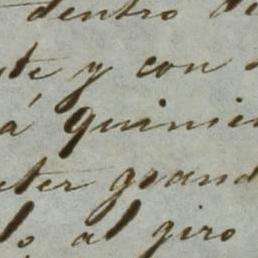 dentro de
ste y con
á quinie
eter grand
lo al giro